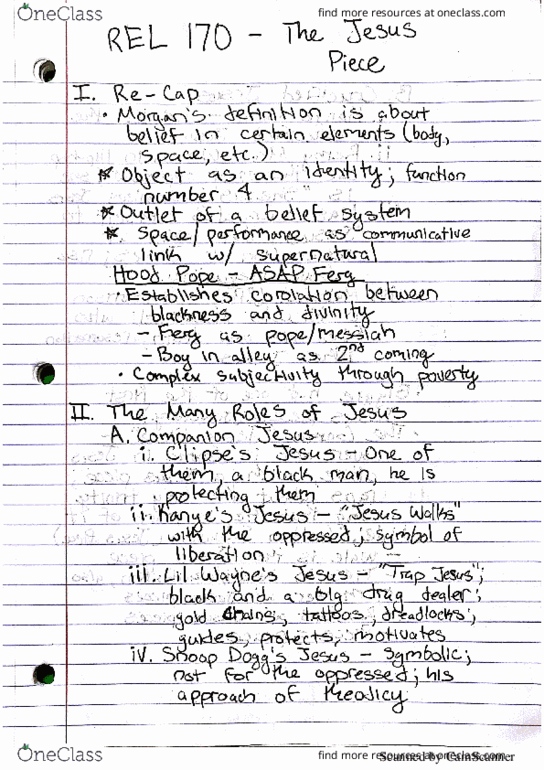 OneClass
find more resources at oneclass.com
REL 170 - The Jesus
Piece
I. Re-Cap
• Morgan's definition is about
belief in certain elements (body,
space, etc.)
* Object as an identity; function
number 4
* Outlet of a belief system
* Space/performance as communicative
link w/ supernatural
Hood Pope - ASAP Ferg
• Establishes corolation between
blackness and divinity
- Ferg as pope/messiah
- Boy in alley as 2nd coming
• Complex subjectivity through poverty
II. The Many Roles of Jesus
A. Companion Jesus
i. Clipse's Jesus - One of
them, a black man, he is
protecting them
ii. Kanye's Jesus - "Jesus Walks"
with the oppressed; symbol of
liberation
iii. Lil Wayne's Jesus - "Trap Jesus";
black and a big drug dealer;
gold chains, tattoos, dreadlocks;
guides, protects, motivates
iv. Snoop Dogg's Jesus - symbolic;
not for the oppressed; his
approach of theodicy
OneClass
find more resources at oneclass.com
Scanned by CamScanner